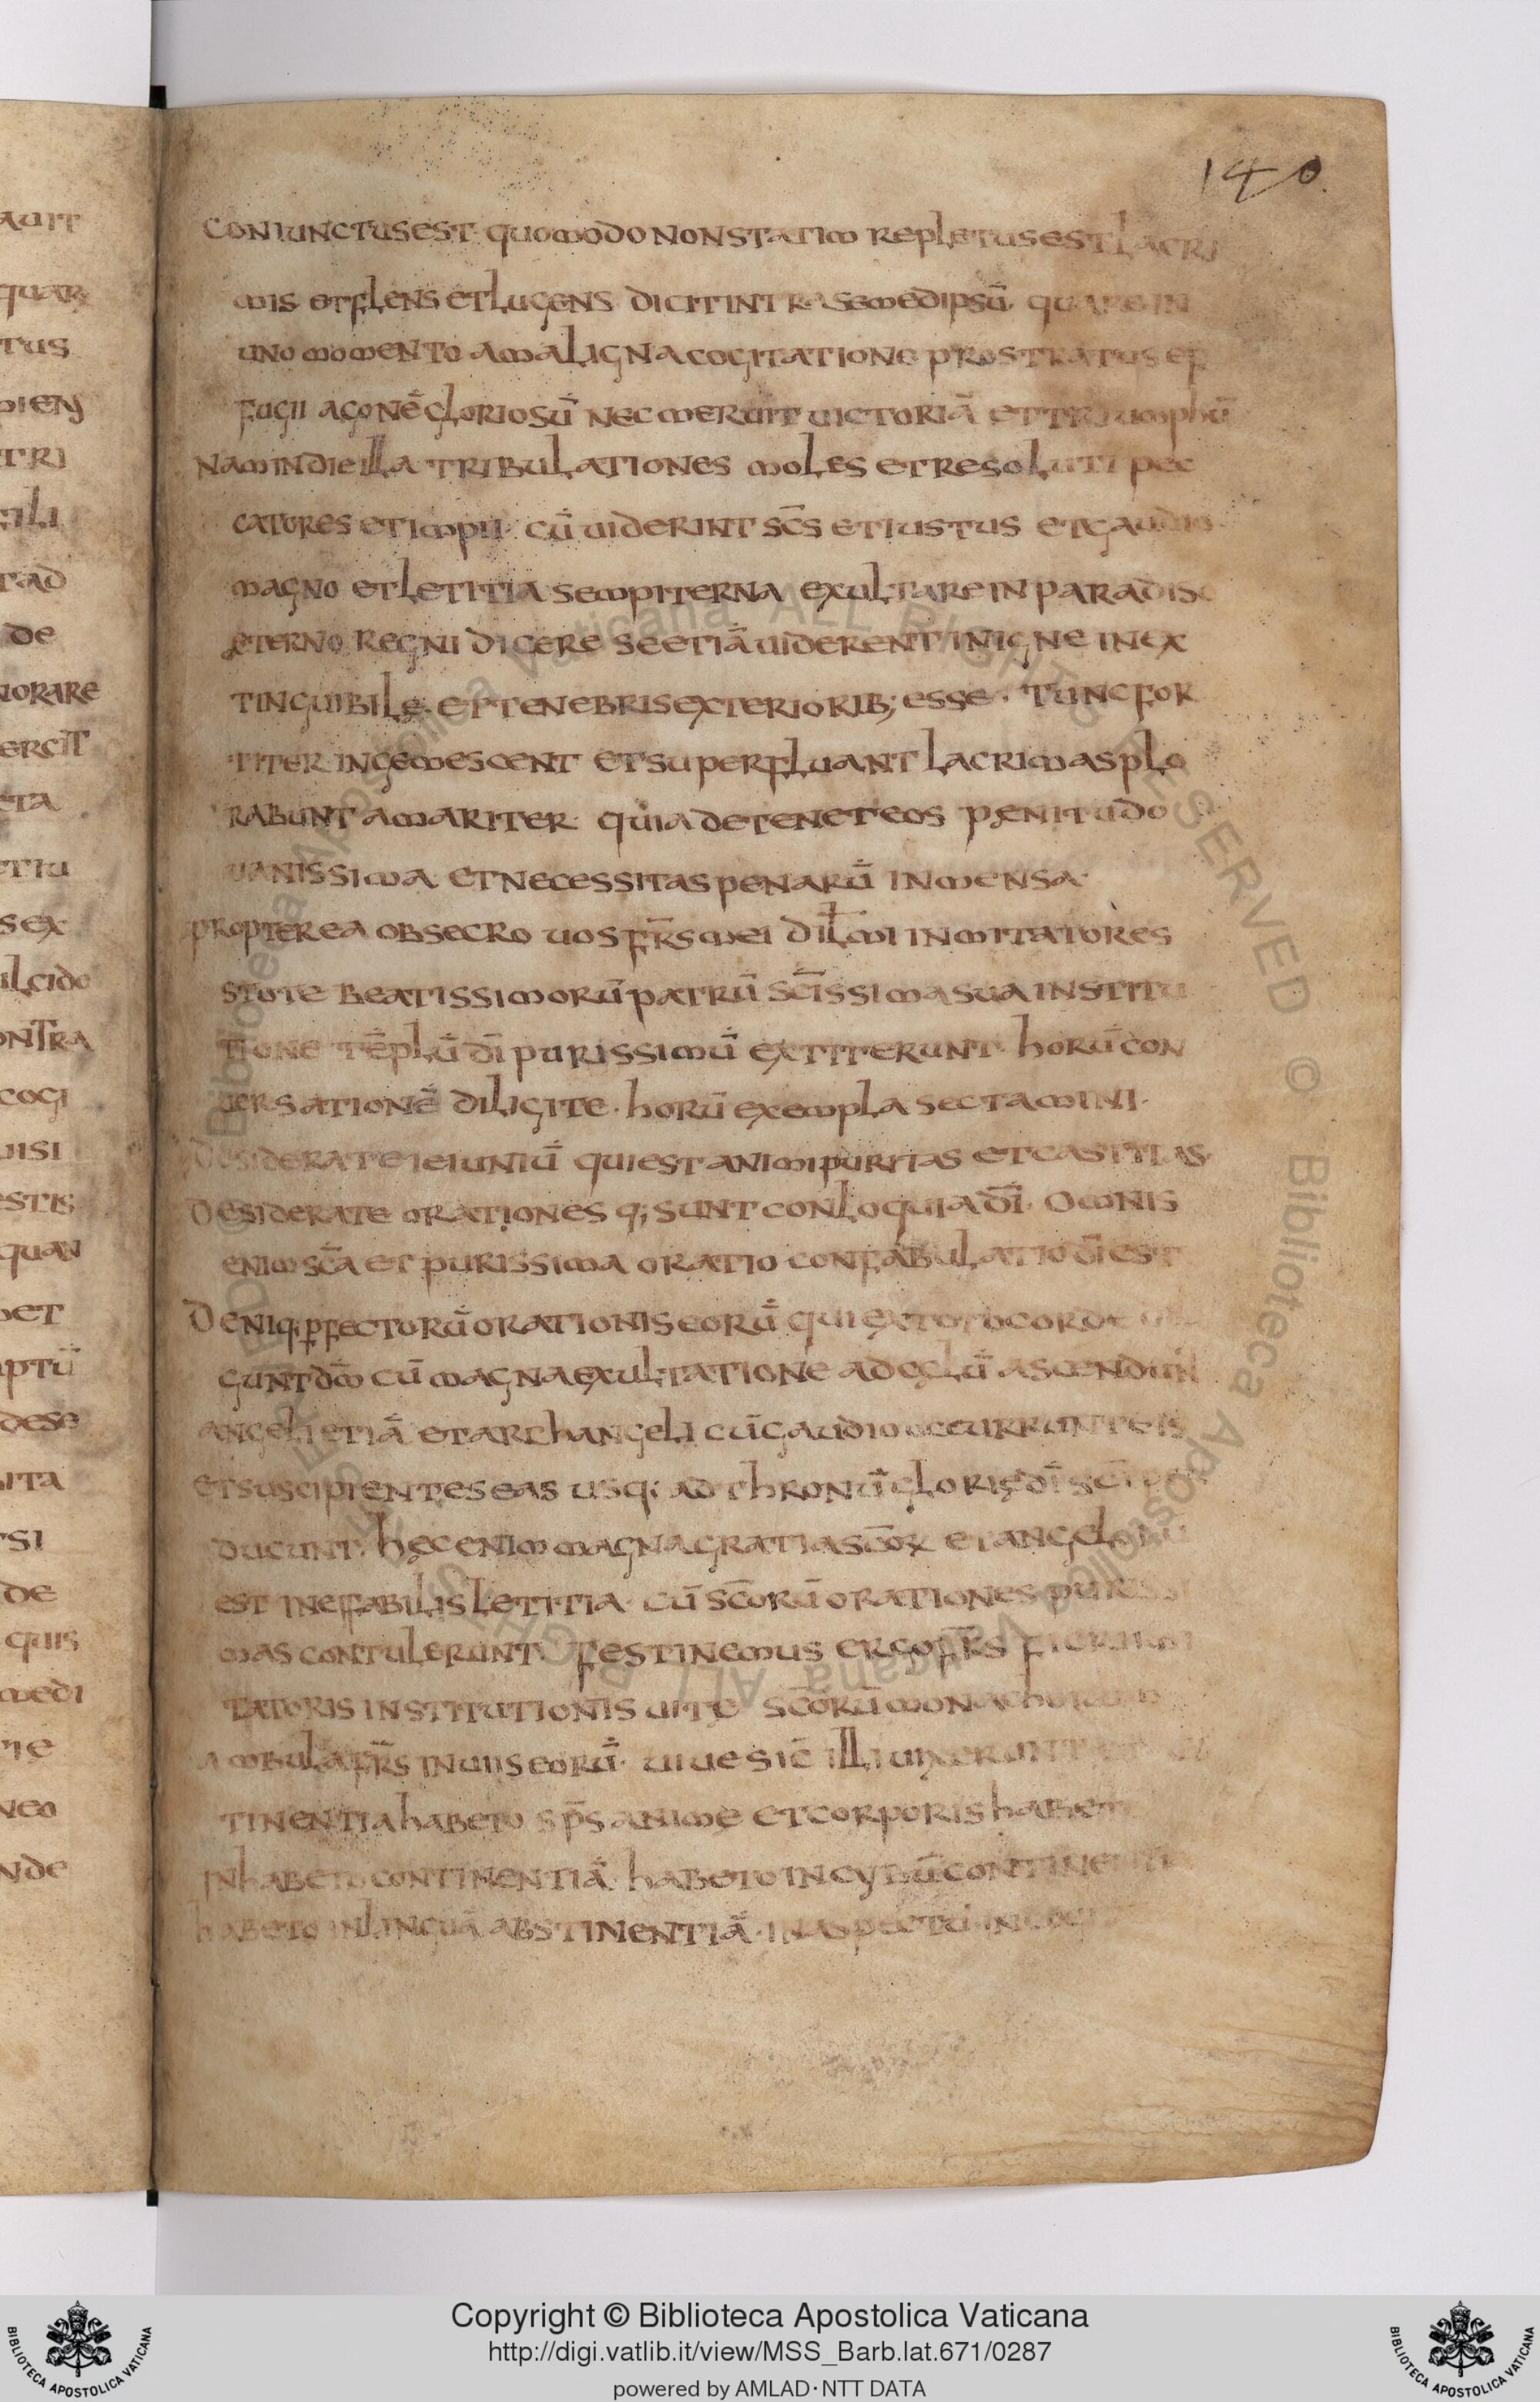 140
coniunctus est quomodo non statim repletus est lacri
mis et flens et lugens dicit intra semedipsū quare in
uno momento a maligna cogitatione prostratus ef
fugii agonē gloriosū nec meruit uictoriā et triumphū
nam in die illa tribulationes moles et resoluti pec
catores et impii· cū uiderint sc̄s et iustus et gaudio
magno et letitia sempiterna exultare in paradiso
ęterno regni dicere se etiā uiderent in igne inex
tinguibile· et tenebris exteriorib; esse· Tunc for
titer ingemescent et superfluant lacrimas plo
rabunt amariter· quia detenet eos penitudo
uanissima et necessitas penarū inmensa·
propterea obsecro uos fr̄s mei dil̄mi inmitatores
stote beatissimorū patrū sc̄issima sua institu
tione tēplū dī purissimū extiterunt· horū con
uersationē diligite· horū exempla sectamini·
Desiderate ieiuniū qui est animi puritas et castitas·
Desiderate orationes q; sunt conloquia dī· Omnis
enim sc̄a et purissima oratio confabulatio dī est
Deniq; pfectorū orationis eorū qui ex toto corde
gunt dm̄ cū magna exultatione ad cęlū ascendunt
angeli etiā et archangeli cū gaudio occurrunt eis
et suscipientes eas usq; ad thronū glorię dī
ducunt· hęc enim magna gratia sc̄orum et angelorū
est inefabilis letitia· cū sc̄orū orationes purissi
mas contulerunt· festinemus ergo fr̄s
tatoris institutionis uite sc̄orū
ambula fr̄s in uiis eorū· uiue sic illi uixerunt
tinentia habeto sps̄ anime et corporis habeto
inhabeto continentiā· habeto in cybū
habeto in linguā abstinentiā· in aspectū
auit
quar
tus
tri
tad
de
norare
ercit
eta
s ex
ulcido
ontra
cogi
uisi
estis
quan
ptū
dese
ita
si
de
quis
medi
nde
Copyright © Biblioteca Apostolica Vaticana
http://digi.vatlib.it/view/MSS_Barb.lat.671/0287
powered by AMLAD·NTT DATA
BIBLIOTECA APOSTOLICA VATICANA
BIBLIOTECA APOSTOLICA VATICANA